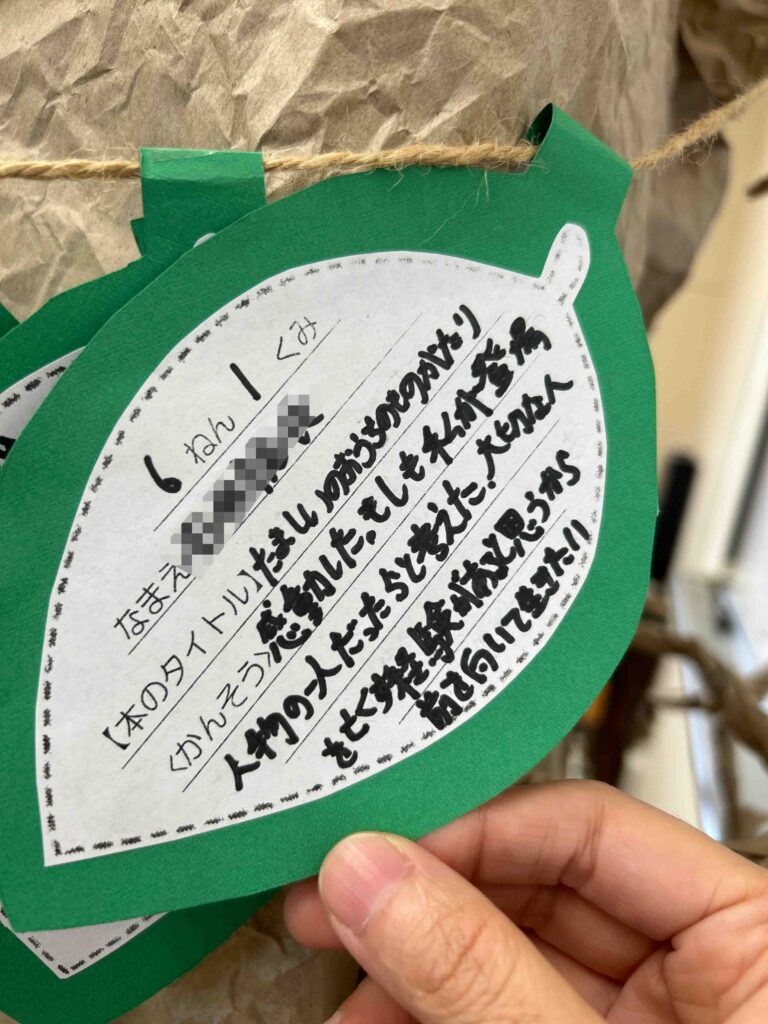 6 ねん 1 くみ
なまえ
【本のタイトル】たましいのおうちのものがたり
〈かんそう〉感動した。もしも私が登場
人物の一人だったらと考えた。大切な人
を亡くす経験があると思うから
前を向いて生きたい!